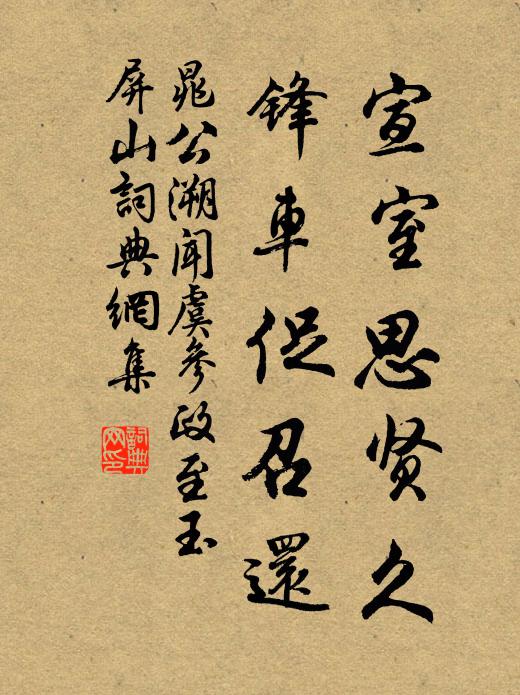 宣室思贤久
锋車促召還
晁公溯闻虞參政至玉
屏山詞典網集
詞典網印